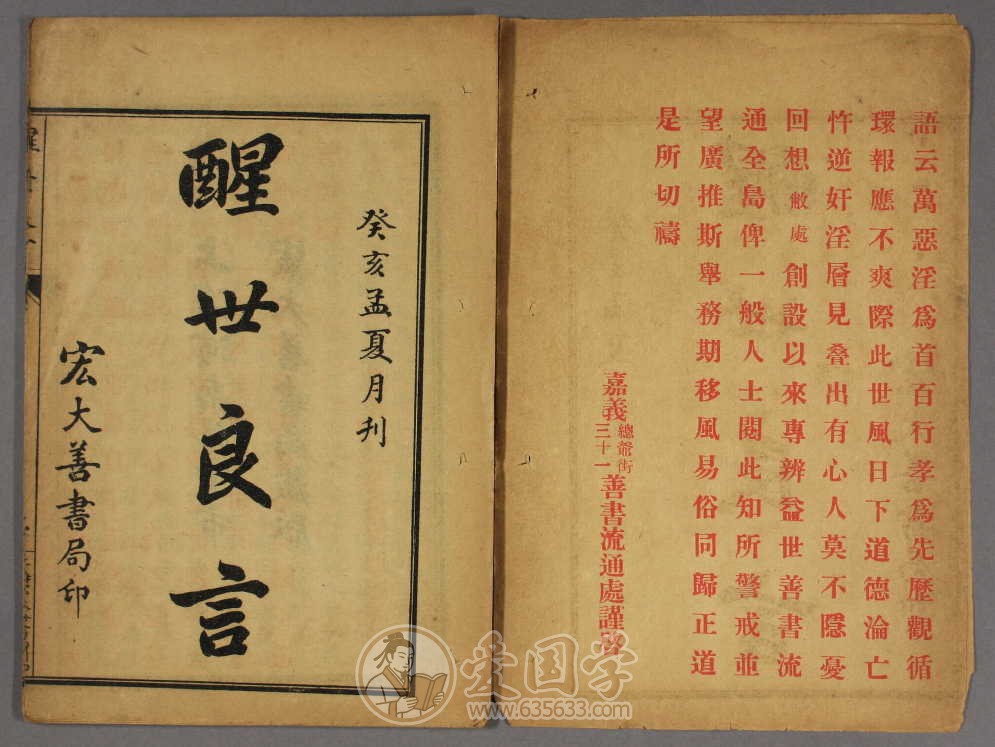 語云萬惡淫爲首百行孝爲先歷觀循
環報應不爽際此世風日下道德淪亡
忤逆奸淫層見叠出有心人莫不隱憂
回想敝處創設以來專辨益世善書流
通全島俾一般人士閱此知所警戒並
望廣推斯舉務期移風易俗同歸正道
是所切禱
嘉義總爺街三十一善書流通處謹啓
癸亥孟夏月刊
醒世良言
宏大善書局印
爱国学
www.635633.com